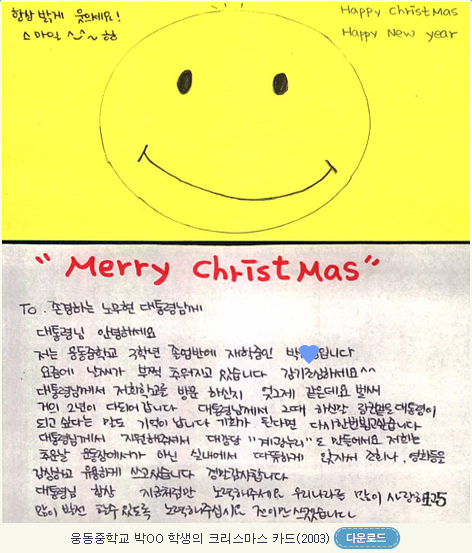 항상 밝게 웃으세요!
스마일 ^-^~ 항
Happy Christmas
Happy New year
"Merry Christmas"
To. 존경하는 노무현 대통령님께
대통령님 안녕하세요
저는 웅동중학교 3학년 졸업반에 재학중인 박 입니다
요즘에 날씨가 부쩍 추워지고 있습니다 감기조심하세요^^
대통령님께서 저희학교를 방문 하신지 엊그제 같은데요 벌써
거의 2년이 다되어갑니다 대통령님께서 그때 하신말 대통령이
되고 싶다는 말도 기억이 납니다 기회가 된다면 다시한번뵙고싶습니다
대통령님께서 지원해주셔서 대강당 "계광누리"도 만들에요 저희는
추운날 운동장에서가 아닌 실내에서 따뜻하게 앉자서 조회나, 영화등을
감상하고 유용하게 쓰고있습니다 정말감사합니다
대통령님 항상 지금처럼만 노력해주세요 우리나라를 많이 사랑하고
15
많이 발전 할수있도록 노력해주십시요 전이만 쓰겠습니다
웅동중학교 박OO 학생의 크리스마스 카드(2003) 다운로드